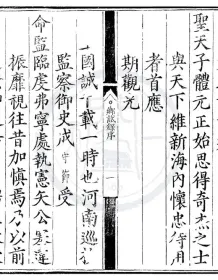 聖天子體元正始思得奇杰之士
與天下維新海內懷忠待用
者首應
期觀光
上國誠千載一時也河南巡
監察御史成守節受
命監臨虔弗寧處執憲矢公
振靡視往昔加慎焉乃以前